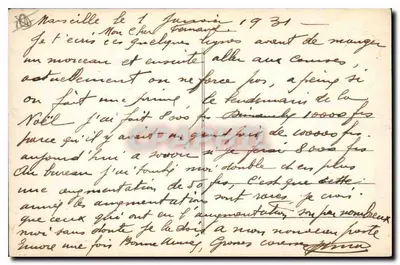 Marseille le 1 Janvier 1931 -
Mon Cher Fernand
Je t'écris ces quelques lignes avant de manger
un morceau et ensuite aller aux courses,
actuellement on ne force pas, à peine si
on fait une prime, le lendemain de la
Noël j'ai fait 800 frs Dimanche 1000 frs
parce qu'il y avait un grand prix de 10000 frs.
aujourd'hui à si je ferai 800 frs
Au bureau j'ai touché moi double et en plus
une augmentation de 50 frs, C'est que cette
année les augmentations sont rares je crois
que ceux qui ont eu l'augmentation son peu nombreux
moi sans doute je la dois à mon nouveau poste
Encore une fois Bonne Année, Grosses